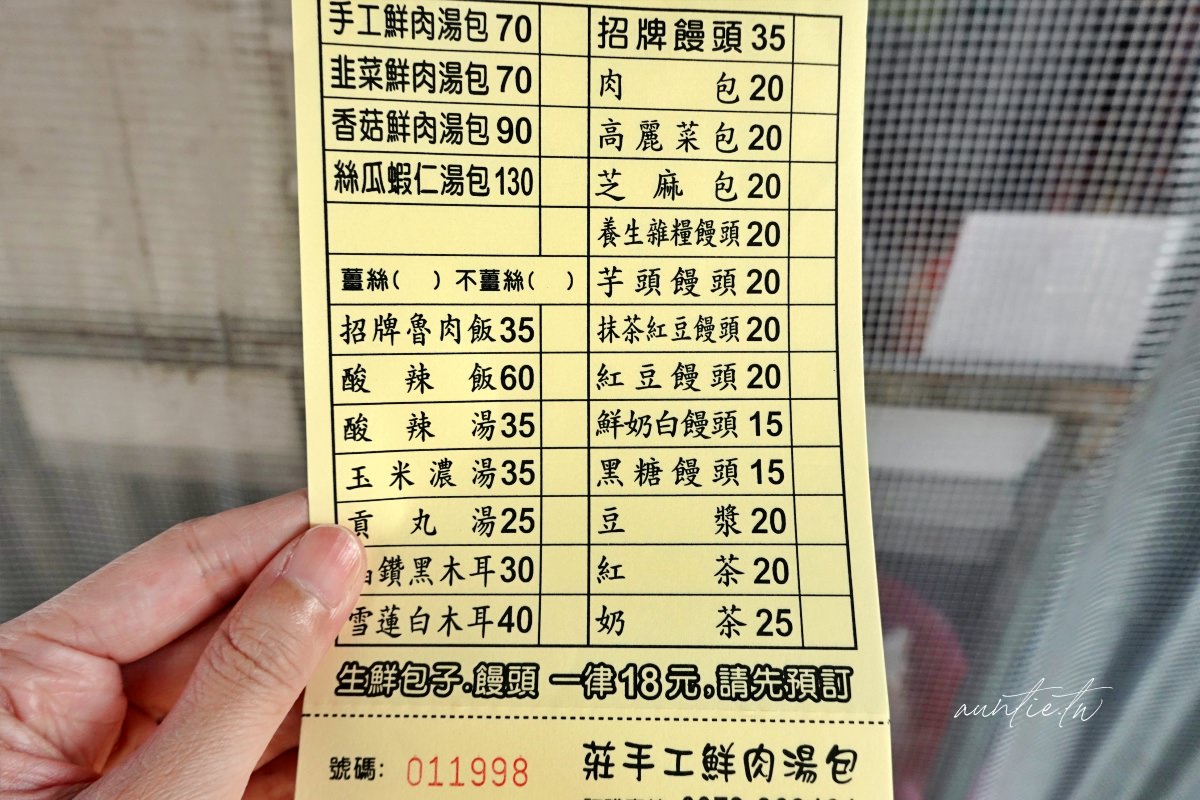 手工鮮肉湯包 70
韭菜鮮肉湯包 70
香菇鮮肉湯包 90
絲瓜蝦仁湯包 130
薑絲( ) 不薑絲( )
招牌魯肉飯 35
酸辣飯 60
酸辣湯 35
玉米濃湯 35
貢丸湯 25
鑽黑木耳 30
雪蓮白木耳 40
招牌饅頭 35
肉包 20
高麗菜包 20
芝麻包 20
養生雜糧饅頭 20
芋頭饅頭 20
抹茶紅豆饅頭 20
紅豆饅頭 20
鮮奶白饅頭 15
黑糖饅頭 15
豆漿 20
紅茶 20
奶茶 25
生鮮包子.饅頭 一律18元,請先預訂
號碼: 011998
莊手工鮮肉湯包
auntie.tw